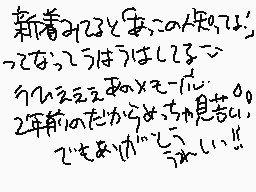 新着みてると「あっこの人知ってる!」
ってなってうはうはしてる
うひぇぇぇあのメモーバル
2年前のだからめっちゃ見苦しい。
でもありがとう
うれしい!!